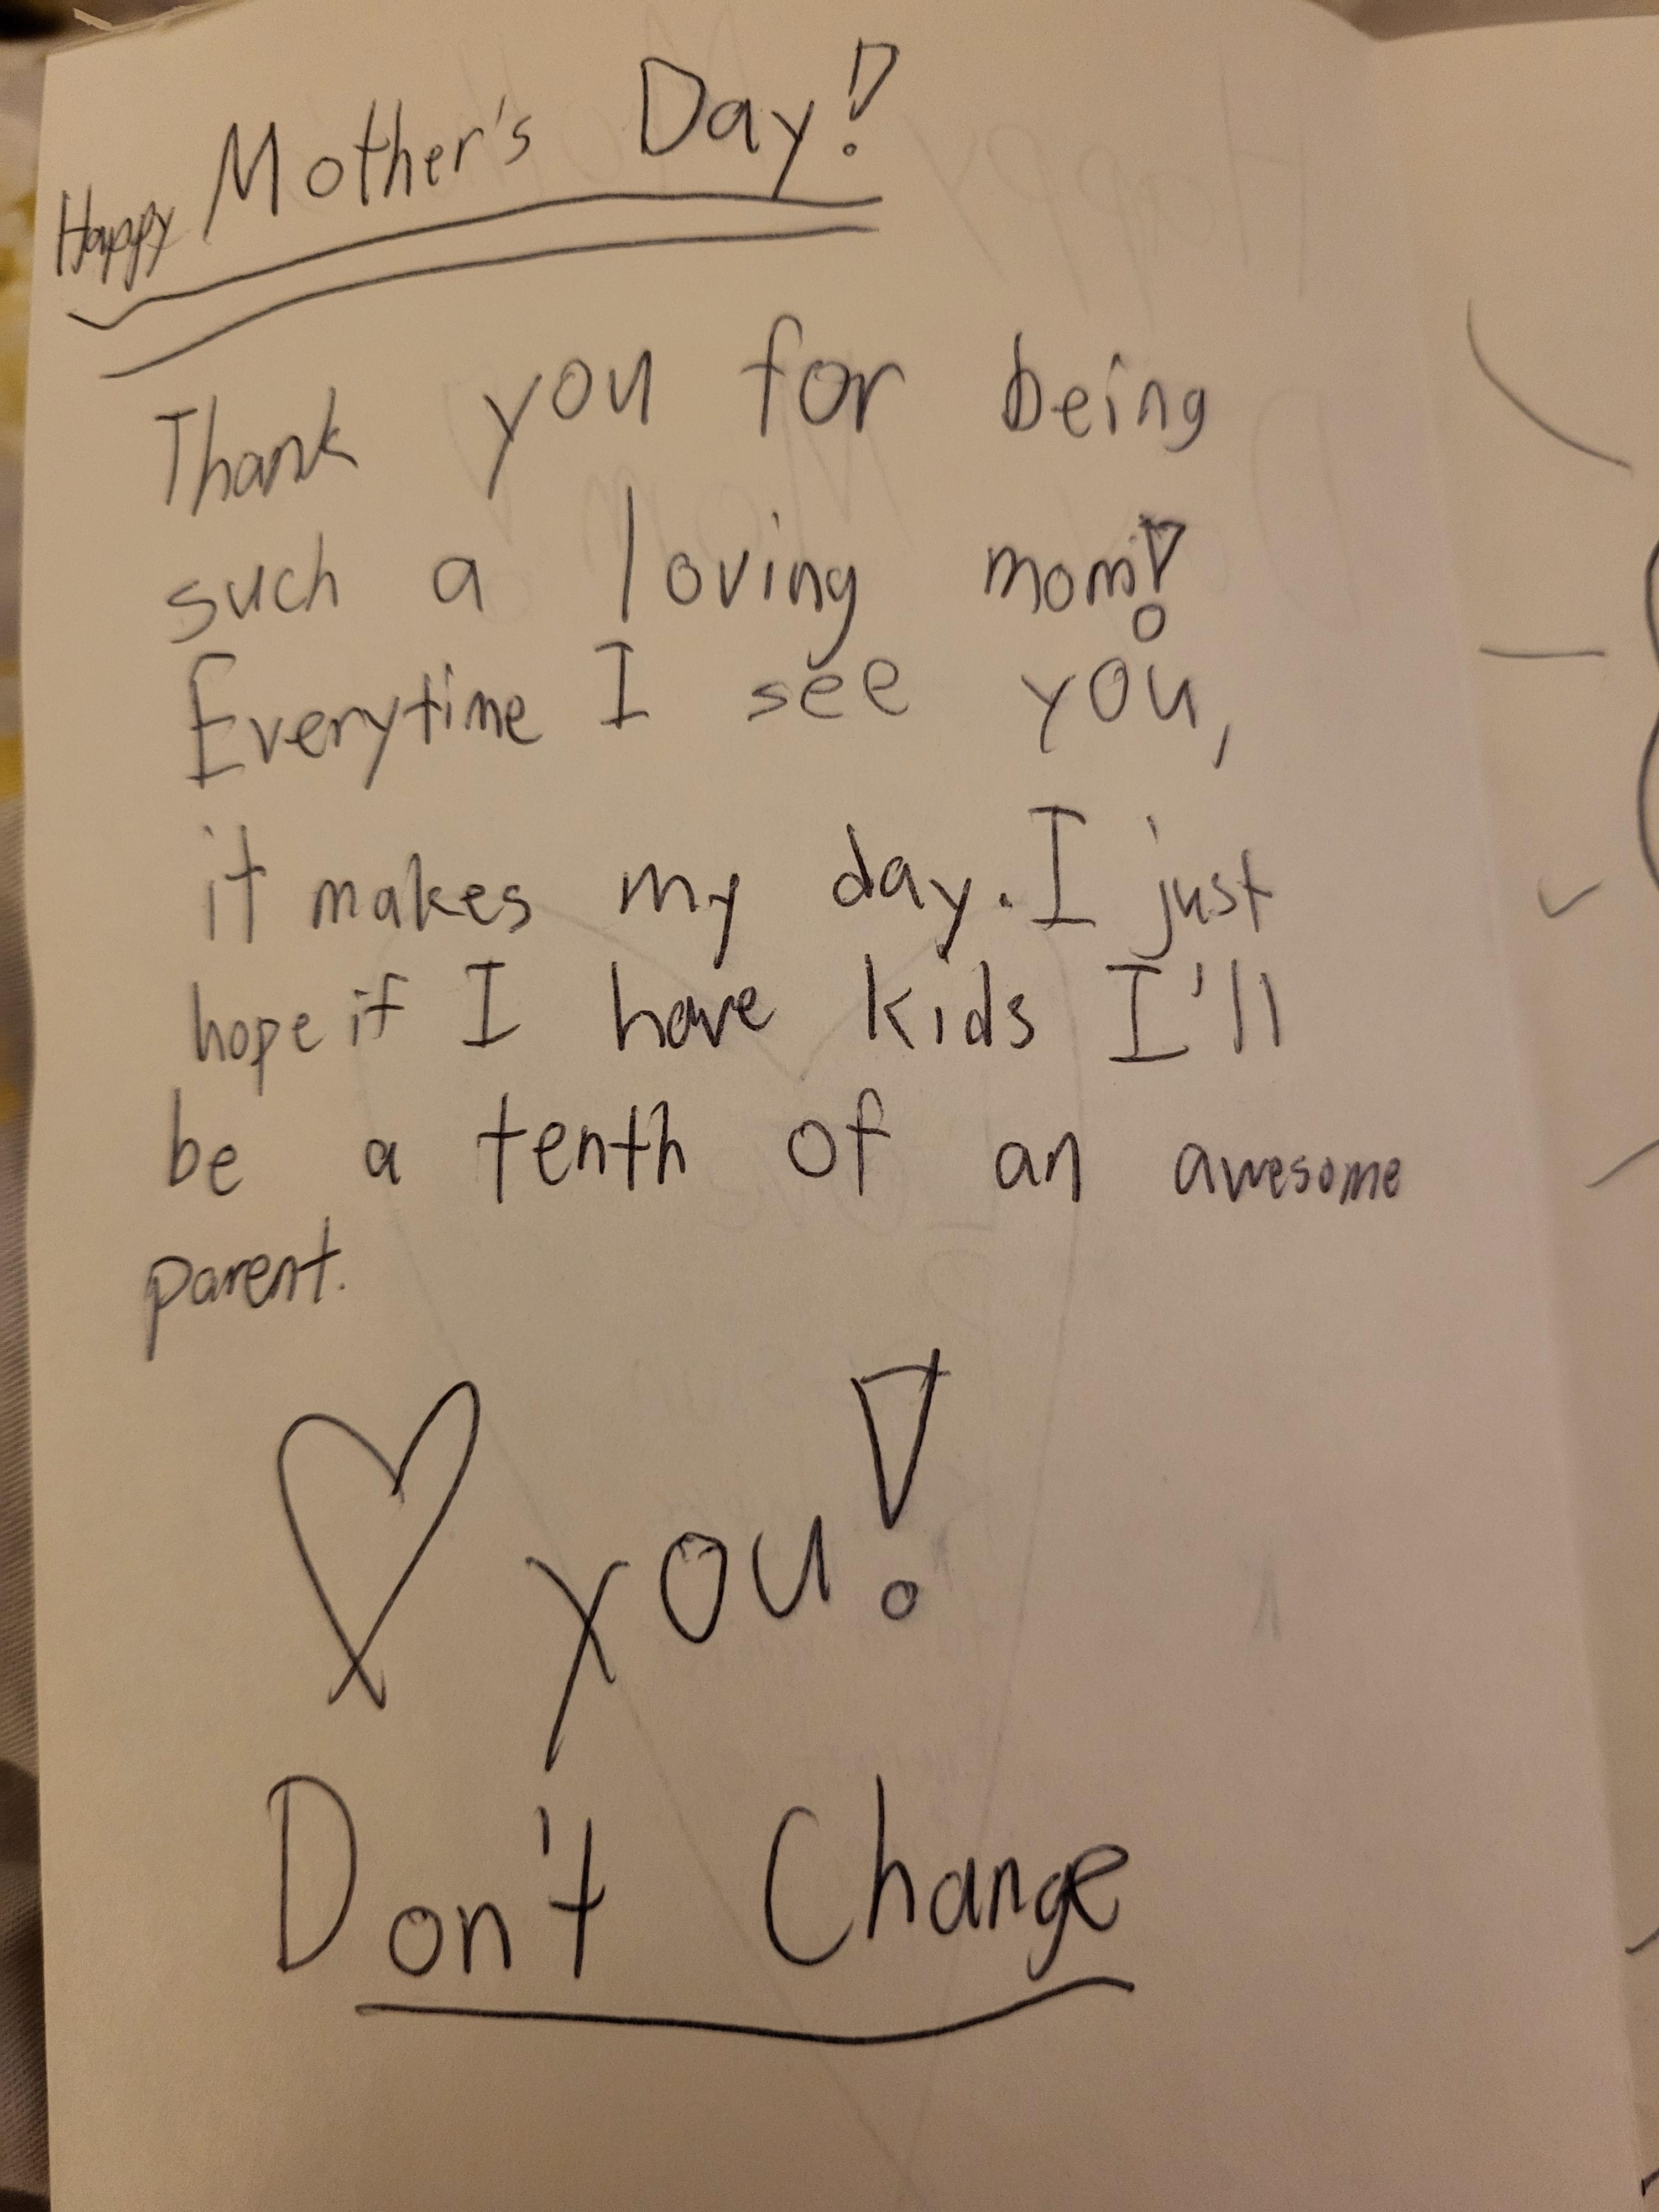 Happy Mother's Day!
Thank you for being
such a loving mom!
Everytime I see you,
it makes my day. I just
hope if I have kids I'll
be a tenth of an awesome
parent.
♡ you!
Don't Change